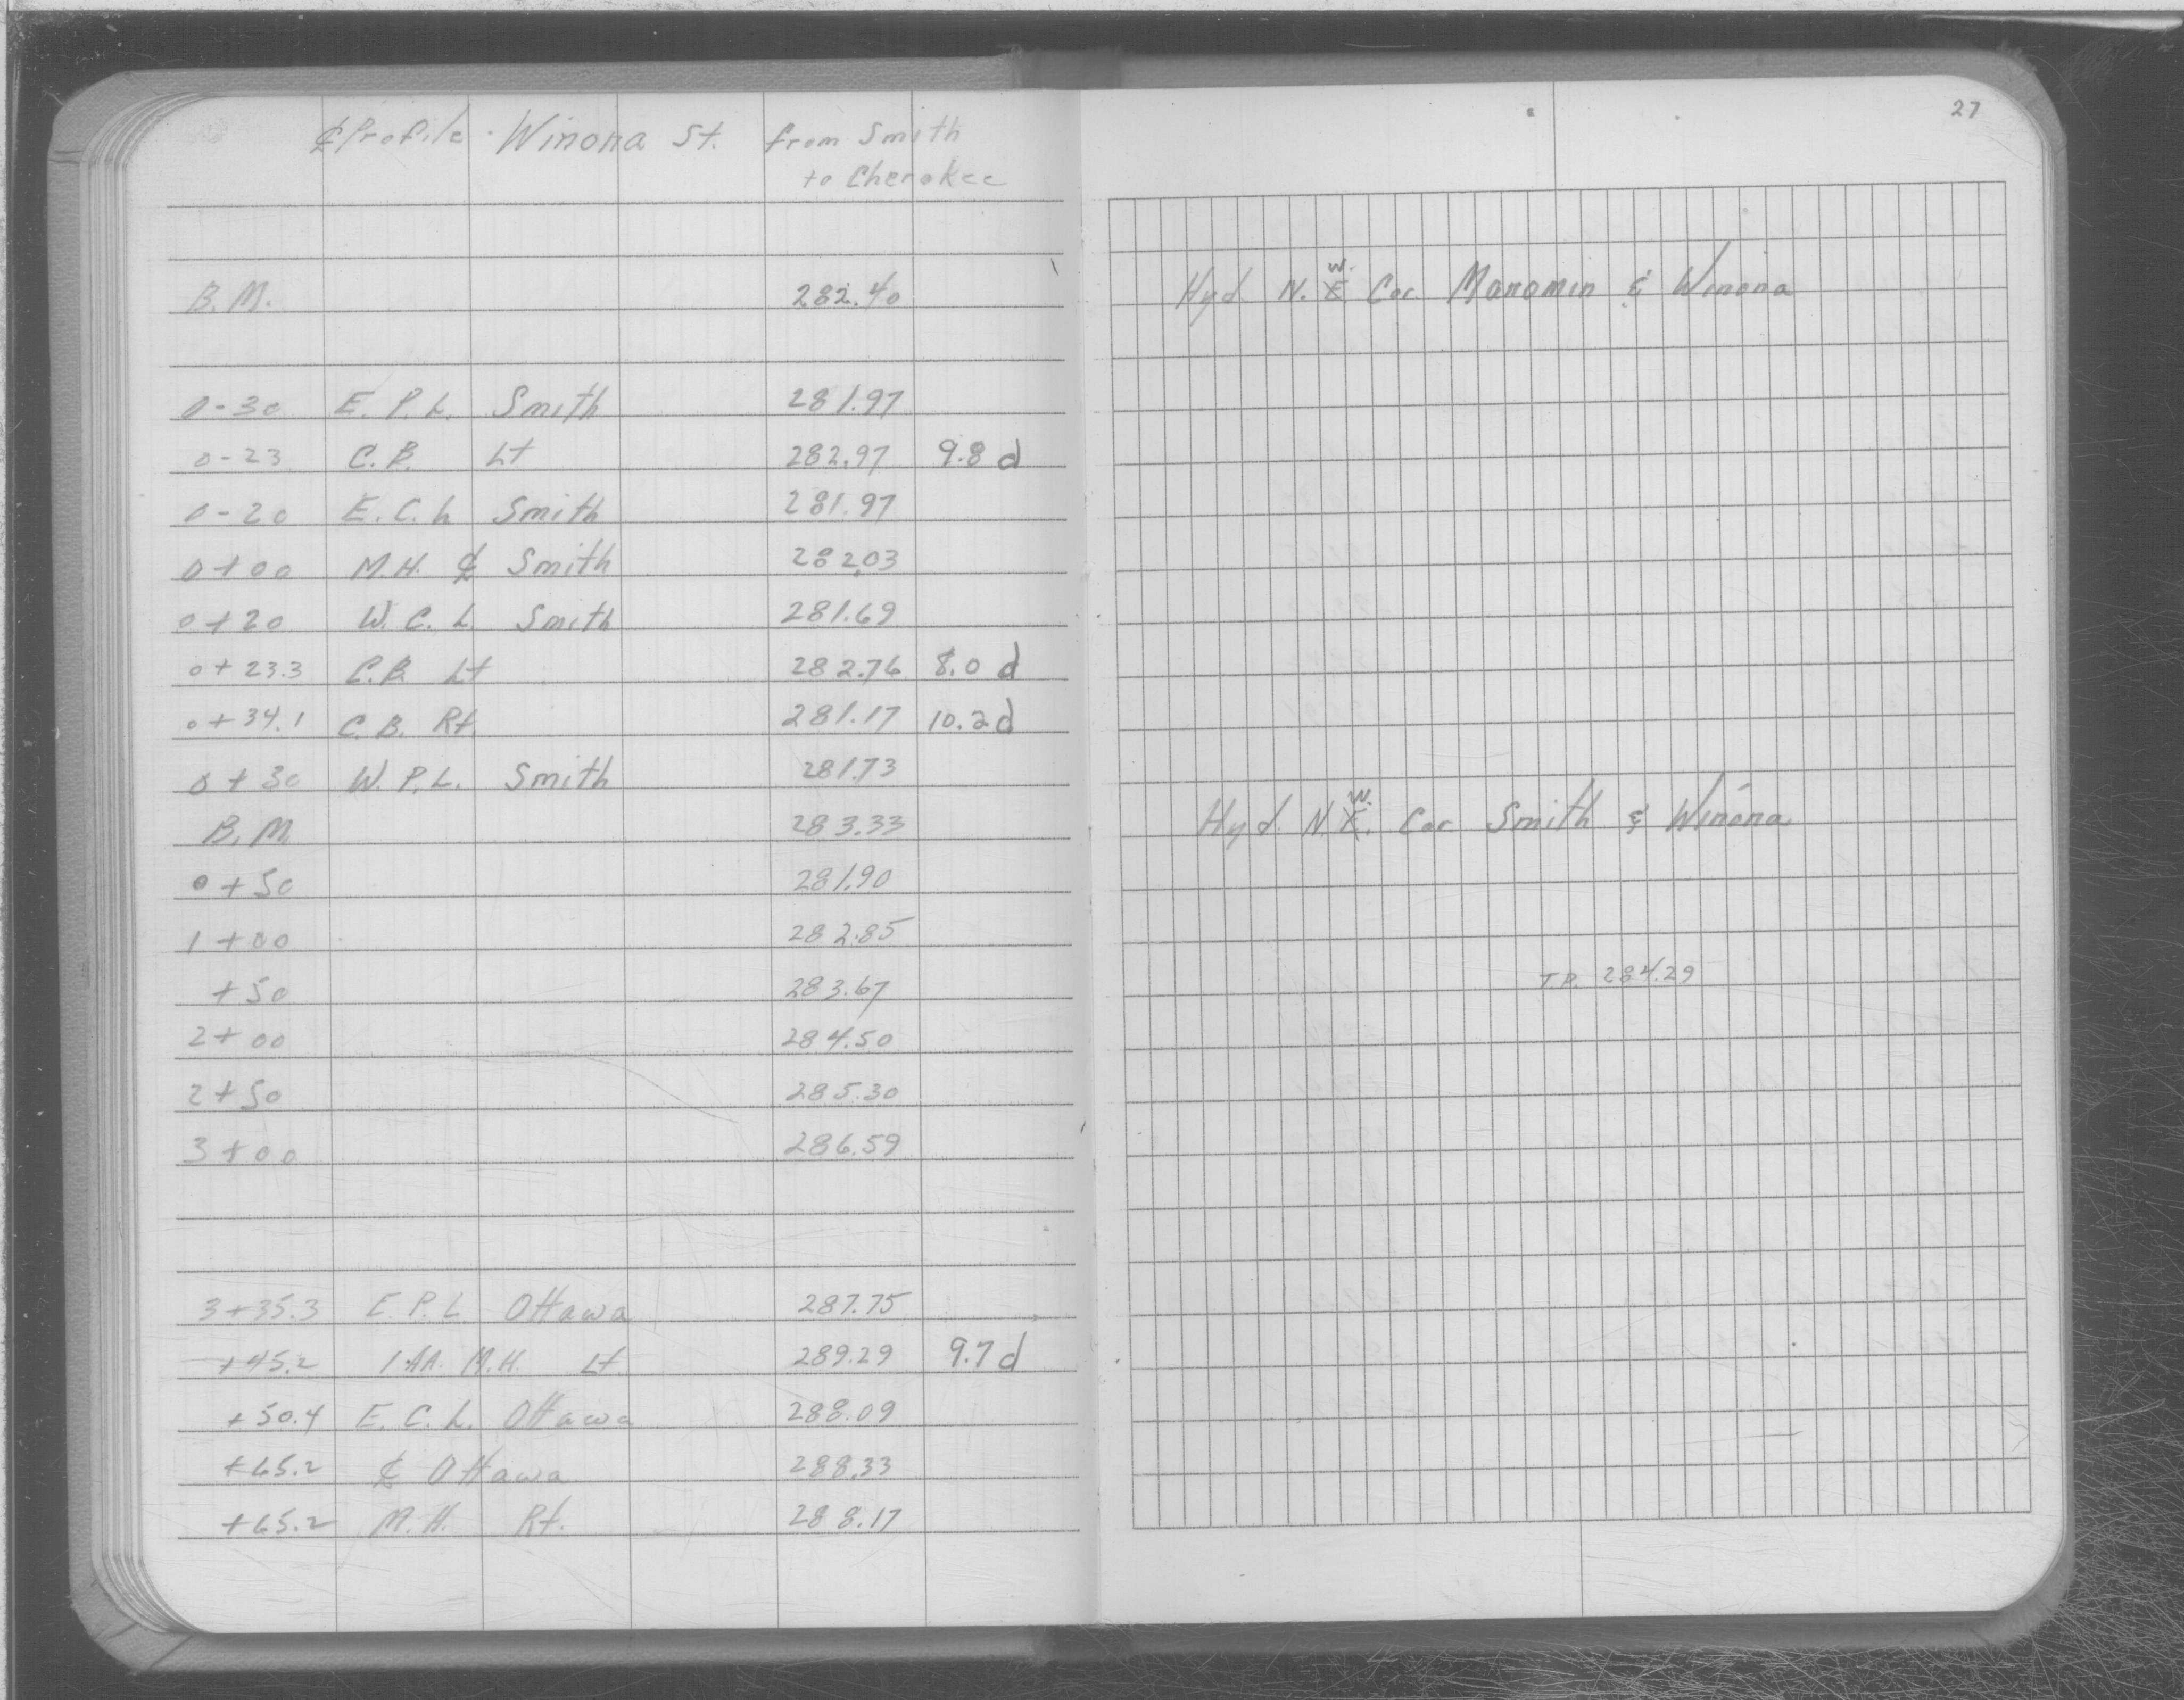 27
℄ Profile Winona St. from Smith
to Cherokee
B.M. 282.40 Hyd N.W. Cor. Manomin & Winona
0-30 E. P. L. Smith 281.97
0-23 C.B. Lt 282.97 9.8 d
0-20 E.C.L Smith 281.97
0+00 M.H. ℄ Smith 282.03
0+20 W.C.L. Smith 281.69
0+23.3 C.B. Lt 282.76 8.0 d
0+34.1 C.B. Rt. 281.17 10.2 d
0+30 W.P.L. Smith 281.73
B.M. 283.33 Hyd. N.W. Cor Smith & Winona
0+50 281.90
1+00 282.85
+50 283.67 T.P. 284.29
2+00 284.50
2+50 285.30
3+00 286.59
3+35.3 E.P.L. Ottawa 287.75
+45.2 M.H. Lt. 289.29 9.7 d
+50.4 E.C.L. Ottawa 288.09
+65.2 ℄ Ottawa 288.33
+65.2 M.H. Rt. 288.17